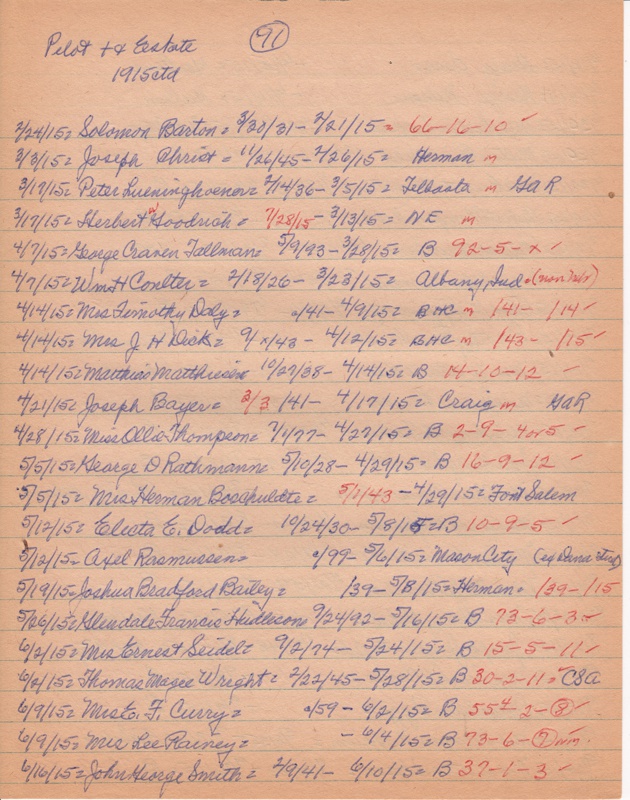 Pilot + Estate
91
1915ctd
2/24/15= Solomon Barton = 3/20/31- 2/21/15= 66-16-10 ✓
3/3/15= Joseph Christ = 11/26/45- 2/26/15= Herman m
3/17/15= Peter Lueninghoener= 2/14/36- 3/5/15= Telbasta m GaR
3/17/15= Herbert Goodrich = 7/28/15- 3/13/15= NE m
4/7/15= George Craven Tallman= 5/9/93- 3/28/15= B 92-5-x ✓
4/7/15= Wm H Coulter = 2/18/26- 3/23/15= Albany, Ind
4/14/15= Mrs Timothy Daly= /41- 4/9/15= BHC m /41- /14 ✓
4/14/15= Mrs J H Dick= 9/x/43 - 4/12/15= BHC m /43- /15 ✓
4/14/15= Matthias Matthiesen 10/27/38- 4/14/15= B 14-10-12 ✓
4/21/15= Joseph Bayer= 3/3 /41- 4/17/15= Craig m GaR
4/28/15= Miss Ollie Thompson= 7/1/77- 4/27/15= B 2-9-4or5 ✓
5/5/15= George D Rathmann= 5/10/28- 4/29/15= B 16-9-12 ✓
5/5/15= Mrs Herman Boschulte= 5/1/43 -4/29/15= Font Salem
5/12/15= Electa E. Dodd= 10/24/30- 5/8/15=B 10-9-5 ✓
5/12/15= Axel Rasmussen= /99- 5/6/15= Mason City (ex Dana
5/19/15= Joshua Bradford Bailey= /39- 5/8/15= Herman= /39-/15
5/26/15= Glendale Francis Hudleson= 9/24/92- 5/16/15= B 73-6-3 ✓
6/2/15= Mrs Ernest Seidel= 9/2/74- 5/24/15= B 15-5-11 ✓
6/2/15= Thomas Magee Wright= 2/22/45- 5/28/15= B 30-2-11= CSA
6/9/15= Mrs E. F. Curry= /59 - 6/2/15= B 55-2-8 ✓
6/9/15= Mrs Lee Rainey= - 6/4/15= B 73-6-7 nm ✓
6/16/15= John George Smith= 2/9/41- 6/10/15= B 37-1-3 ✓